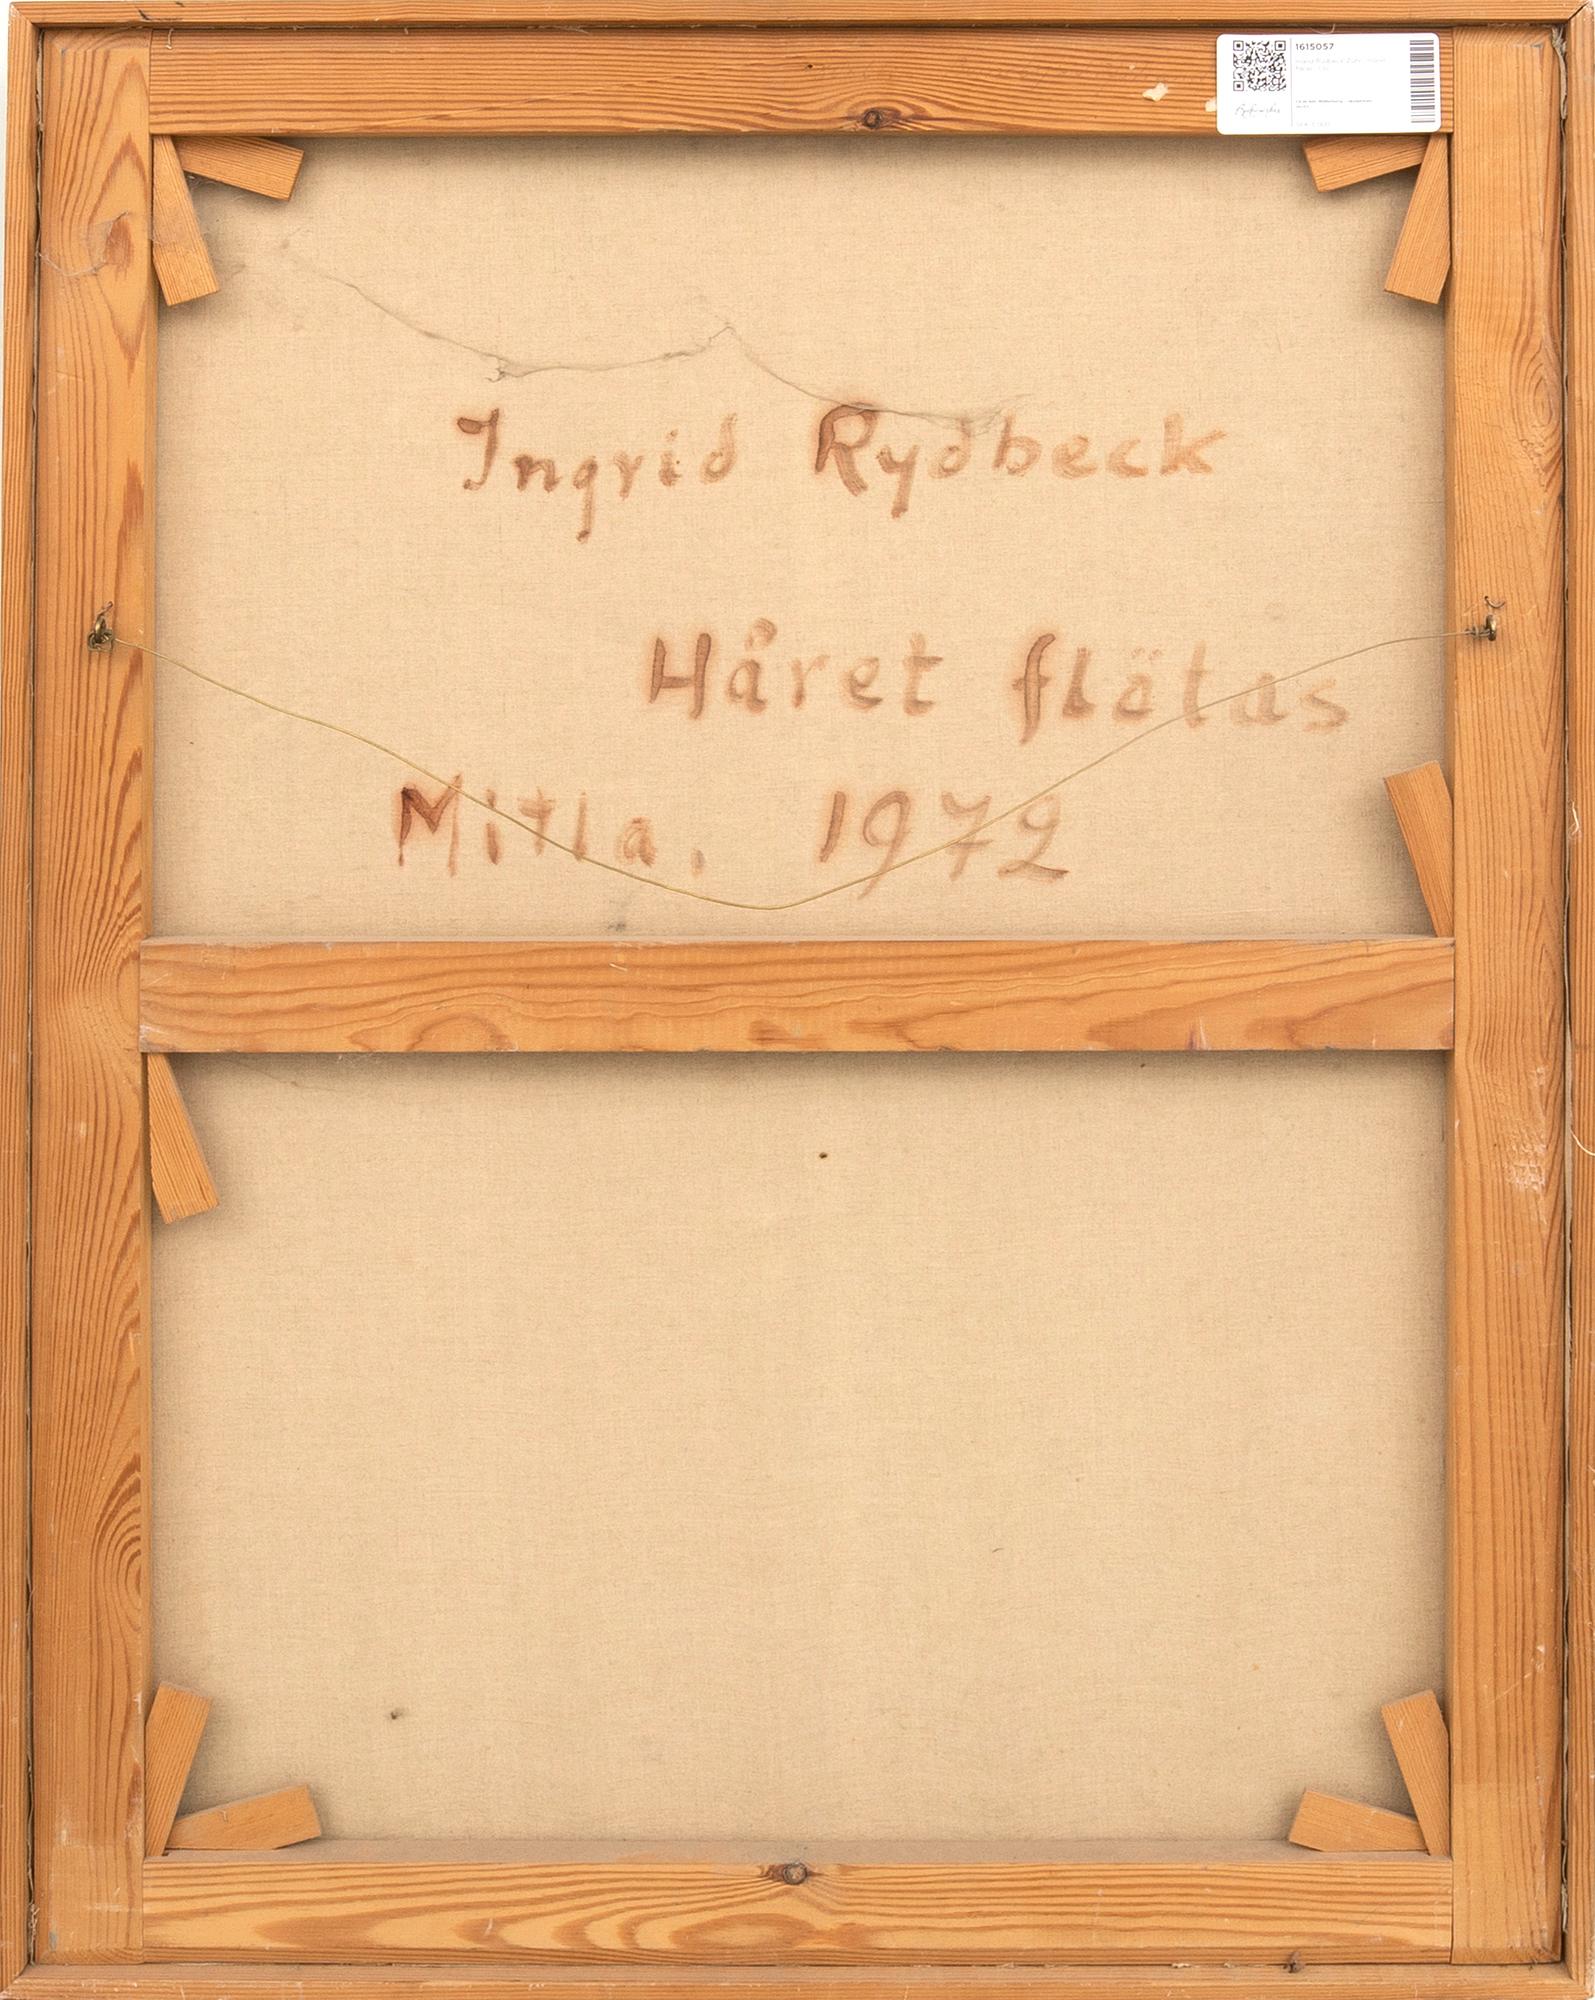 1615057
Ingrid Rydbeck
Håret flätas
Mitla, 1972